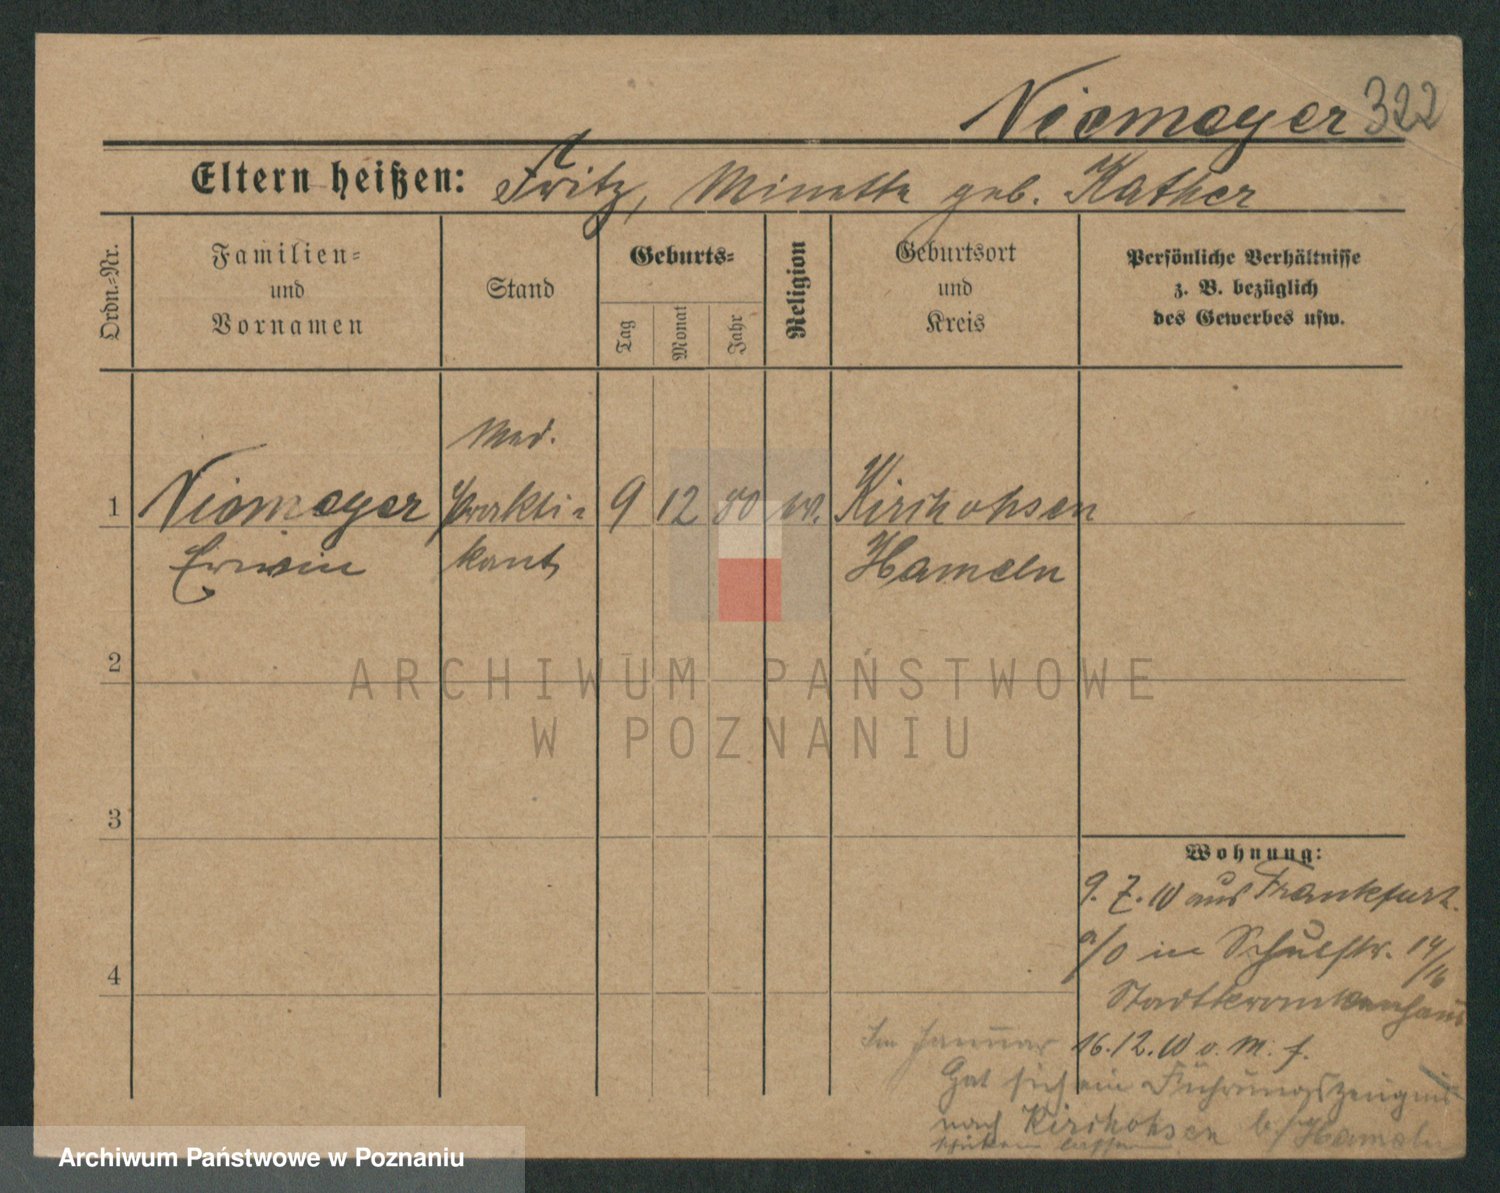 Niemeyer 322
Eltern heißen: Fritz, Minette geb. Kather
Ordn.-Nr.
Familien-
und
Vornamen
Stand
Geburts-
Tag
Monat
Jahr
Religion
Geburtsort
und
Kreis
Persönliche Verhältnisse
z. B. bezüglich
des Gewerbes usw.
Med.
1 Niemeyer Prakti- 9 12 80 Kirchohsen
Erwin kant Hameln
2
3
4
Wohnung:
9.7.10 aus Frankfurt
a/O in Schulstr. 14/16
Stadtkrankenhaus
16.12.10 o. M. f.
Im Januar
Hat sich ein Führungszeugnis
nach Kirchohsen b/Hameln
schicken lassen
ARCHIWUM PAŃSTWOWE
W POZNANIU
Archiwum Państwowe w Poznaniu